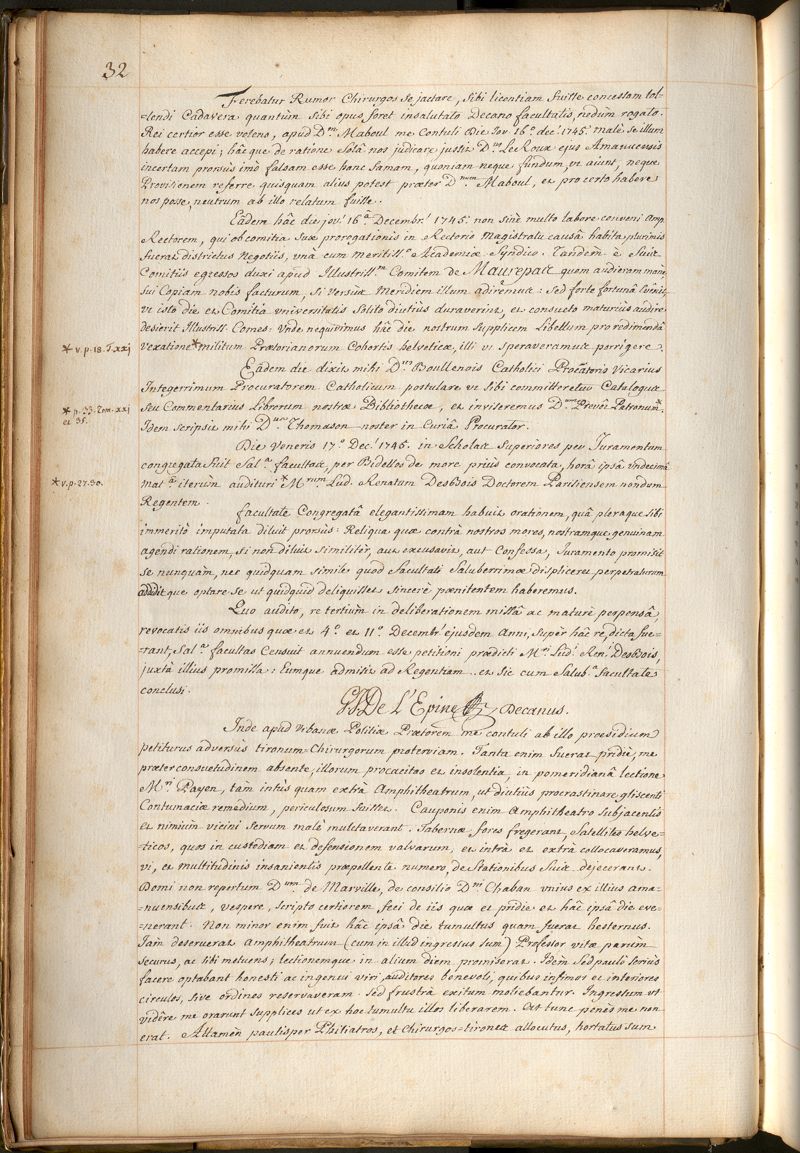 32
Ferebatur Rumor Chirurgos se jactare, sibi licentiam fuisse concessam tol-
=lendi Cadavera quantùm sibi opus foret insalutato Decano facultatis, nedum rogato.
Rei certior esse volens, apud D.um Maboul me Contuli Die Jov. 16.a dec.' 1745. malè se illum
habere accepi; hâcque de ratione solâ nos judicare jussit D.us Le Roux ejus Amanuensis
incertam prorsùs imò falsam esse hanc famam, quoniam neque fundum, ut aiunt, neque
Provisionem referre quisquam alius potest praeter D.num Maboul, et pro certo habere
nos posse, neutrum ab illo relatum fuisse.
Eâdem hâc die jov.' 16.a Decembr.' 1745. non sinè multo labore conveni Amp.
Rectorem, qui ob comitia suae prorogationis in Rectorio Magistratu causâ habita, plurimis
fuerat districtus Negotiis, unà cum meritiss.o Academiae Syndico. Tandèm è suis
Comitiis egressos duxi apud Illustriss.m Comitem de Maurepas quem audieram mane,
sui Copiam nobis facturum, si versùs Meridiem illum adiremus: Sed forte fortunâ
ut isto die et Comitia universitatis solito diutiùs duraverint, et consueto maturiùs audire
desierit Illustriss. Comes: Unde nequivimus hâc die nostrum supplicem Libellum pro redimendâ
* v. p. 18. T. xxj
vexatione * militum Praetorianorum Cohortis helveticae, illi ut speraveramus porrigere.
Eâdem die dixit mihi D.us Boullenois Catholici Procuratoris Vicarius
Integerrimum Procuratorem Catholicum postulare ut sibi committeretur Catalogus
* p. 33. Tom. xxj
et 35.
seu Commentarius Librorum nostrae Bibliothecae, et inviseremus D.um Prevôt Patronum*.
Idem scripsit mihi D.us Thomason noster in Curiâ Procurator.
Die Veneris 17.a Dec.' 1745. in Scholas Superiores per Juramentum
congregata fuit Sal.a facultas, per Bidellos de more priùs convocata, horâ ipsâ undecimâ
* v. p. 27. 30.
mat.a iterùm auditura * M.rum Lud. Renatum DesBois Doctorem Parisiensem nondum
Regentem.
facultate Congregatâ elegantissimam habuit orationem, quâ pleraque sibi
immeritò imputata diluit prorsùs: Reliqua quae contrà nostros mores, nostramque genuinam
agendi rationem, si non diluit similitèr, aut excusavit, aut Confessus, Juramento promisit
se nunquàm, nec quidquam simile quod facultati Saluberrimae displiceret perpetraturum
addidit que optare se ut quidquid deliquisset sincerè poenitentem haberemus.
Quo audito, re tertiùm in deliberationem missâ ac maturè perpensâ,
revocatis iis omnibus quae et 4.o et 11.o Decembr' ejusdem Anni, super hâc re, dicta fue-
=rant; Sal.a facultas Censuit annuendum esse petitioni praedicti M.ri Lud.' Ren.' DesBois,
juxtà illius promissa: Eumque admisit ad Regentiam. et sic cum Salub.a facultate
conclusi.
GJ De L'Epine Decanus.
Inde apud Urbanae Politiae Praetorem me contuli ab illo praesidium
petiturus adversùs tironum Chirurgorum proterviam. Tanta enim fuerat pridie, me
praeter consuetudinem absente, illorum procacitas et insolentia, in pomeridianâ lectione
M.ri Payen, tàm intùs quam extrà Amphitheatrum, ut diutiùs procrastinare gliscenti
Contumaciae remedium, periculosum fuisset. Cauponis enim Amphitheatro subjacentis
et nimiùm vicini servum malè mulctaverant. Tabernae fores fregerant, Satellites helve-
=ticos, quos in custodiam et defensionem valvarum, et intrà et extrà collocaveramus,
vi, et multitudinis insanientis praepellente numero, de Stationibus suis dejecerant.
Domi non repertum D.um de Marville, de consilio D.ni Chaban unius ex illius ama-
=nuensibus, vespere, scripto certiorem feci de iis quae et pridie et hâc ipsâ die eve-
=nerant. Non minor enim fuit hâc ipsâ die tumultus quam fuerat hesternus.
Jam deseruerat Amphitheatrum (cum in illud ingressus sum) Professor vitae parùm
securus, ac sibi metuens; lectionemque in alium diem promiserat. Idem sed pauli toriùs
facere optabant honesti ac ingenui viri, auditores benevoli, quibus infimos et interiores
circulos, sive ordines reservaveram. Sed frustrà exitum moliebantur. Ingressum ut
vidêre me orarunt supplices ut ex hoc tumultu illos liberarem. Ast tunc penès me non
erat. Attamèn paulispèr Philiatros, et Chirurgos=tirones allocutus, hortatus sum